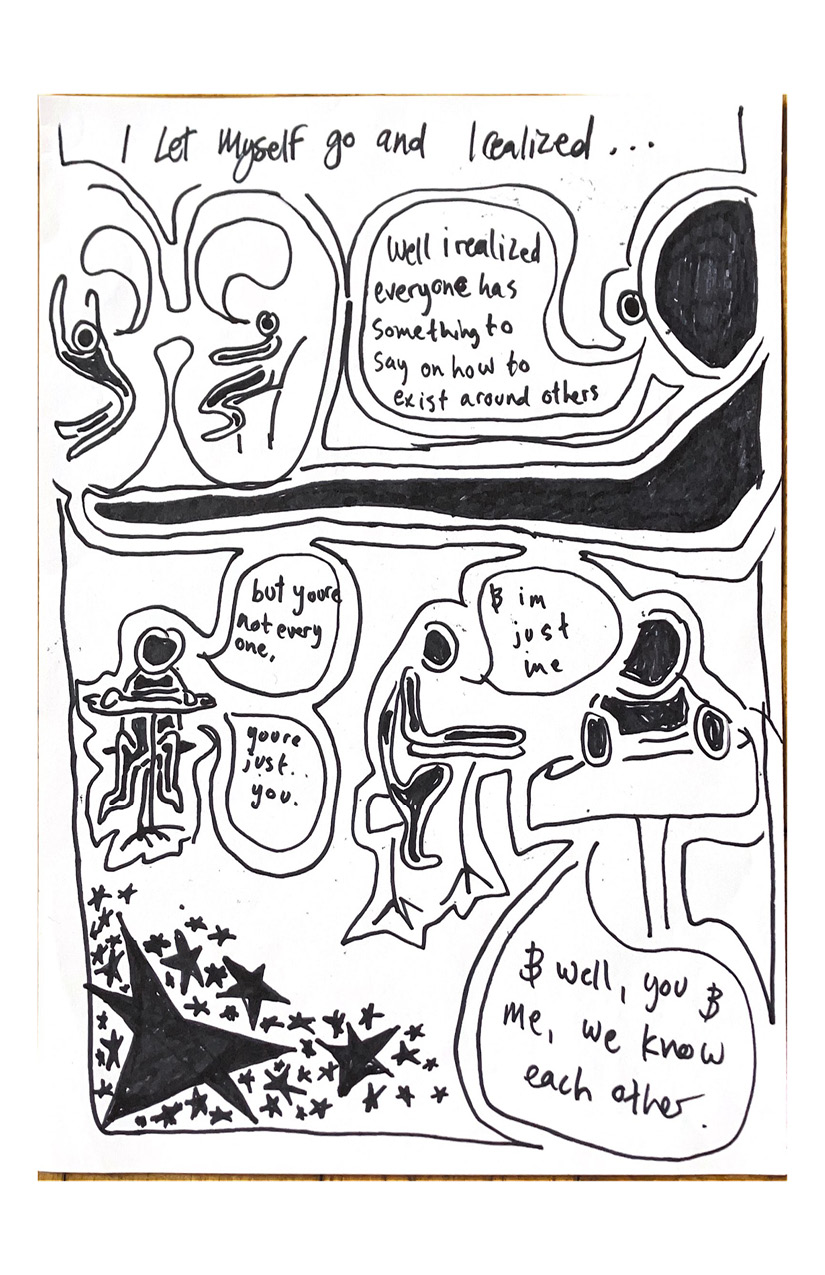 I Let Myself go and I realized ...
Well i realized
everyone has
something to
say on how to
exist around others
but youre
not every
one,
youre
just..
you.
& im
just
me
& well, you &
me, we know
each other.